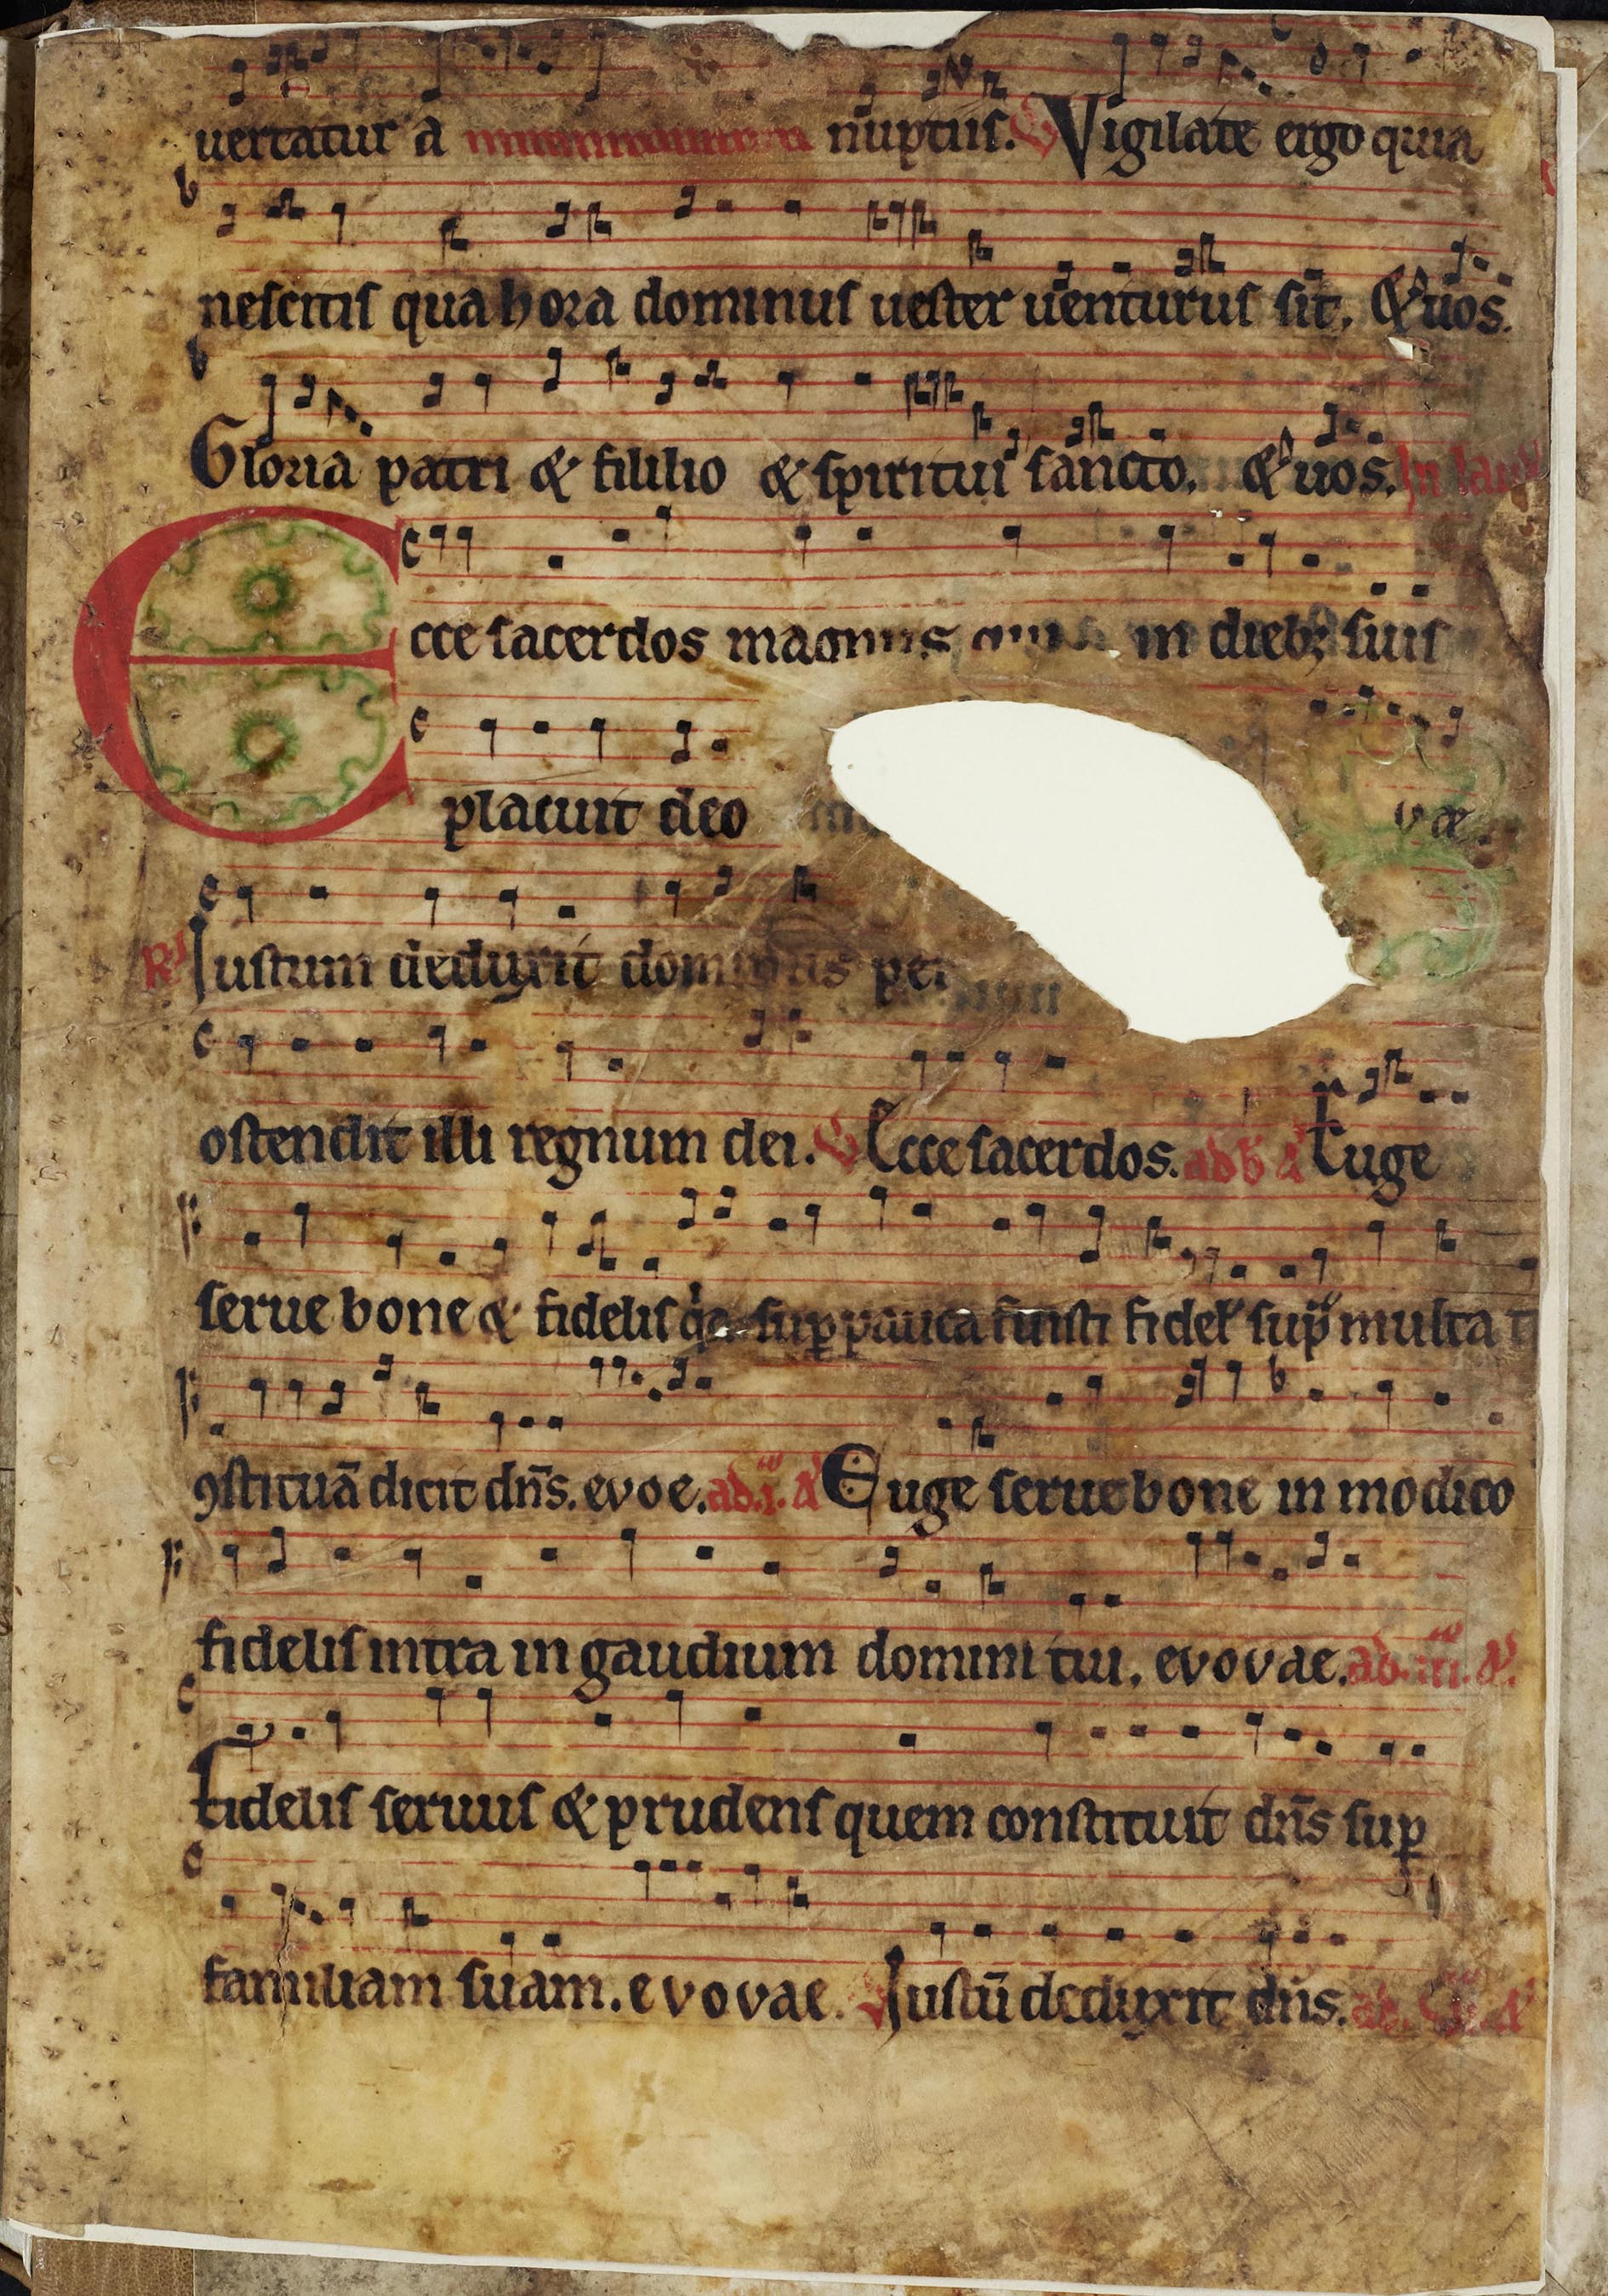 uertatur a nuptiis. Vigilate ergo quia
nescitis qua hora dominus uester uenturus sit. & uos.
Gloria patri & fililio & spiritui sancto. & uos. In laud
Ecce sacerdos magnus in dieb; suis
placuit deo
R Iustum deduxit dominus per
ostendit illi regnum dei. Ecce sacerdos. ad b a Euge
serue bone & fidelis qa sup pauca fuisti fidel sup multa t
ꝯstituā dicit dn̄s. evoe. ad .i. a Euge serue bone in modico
fidelis intra in gaudium domini tui. evovae. ad .iii. a.
Fidelis seruus & prudens quem constituit dn̄s sup
familiam suam. evovae. Iustū deduxit dn̄s.